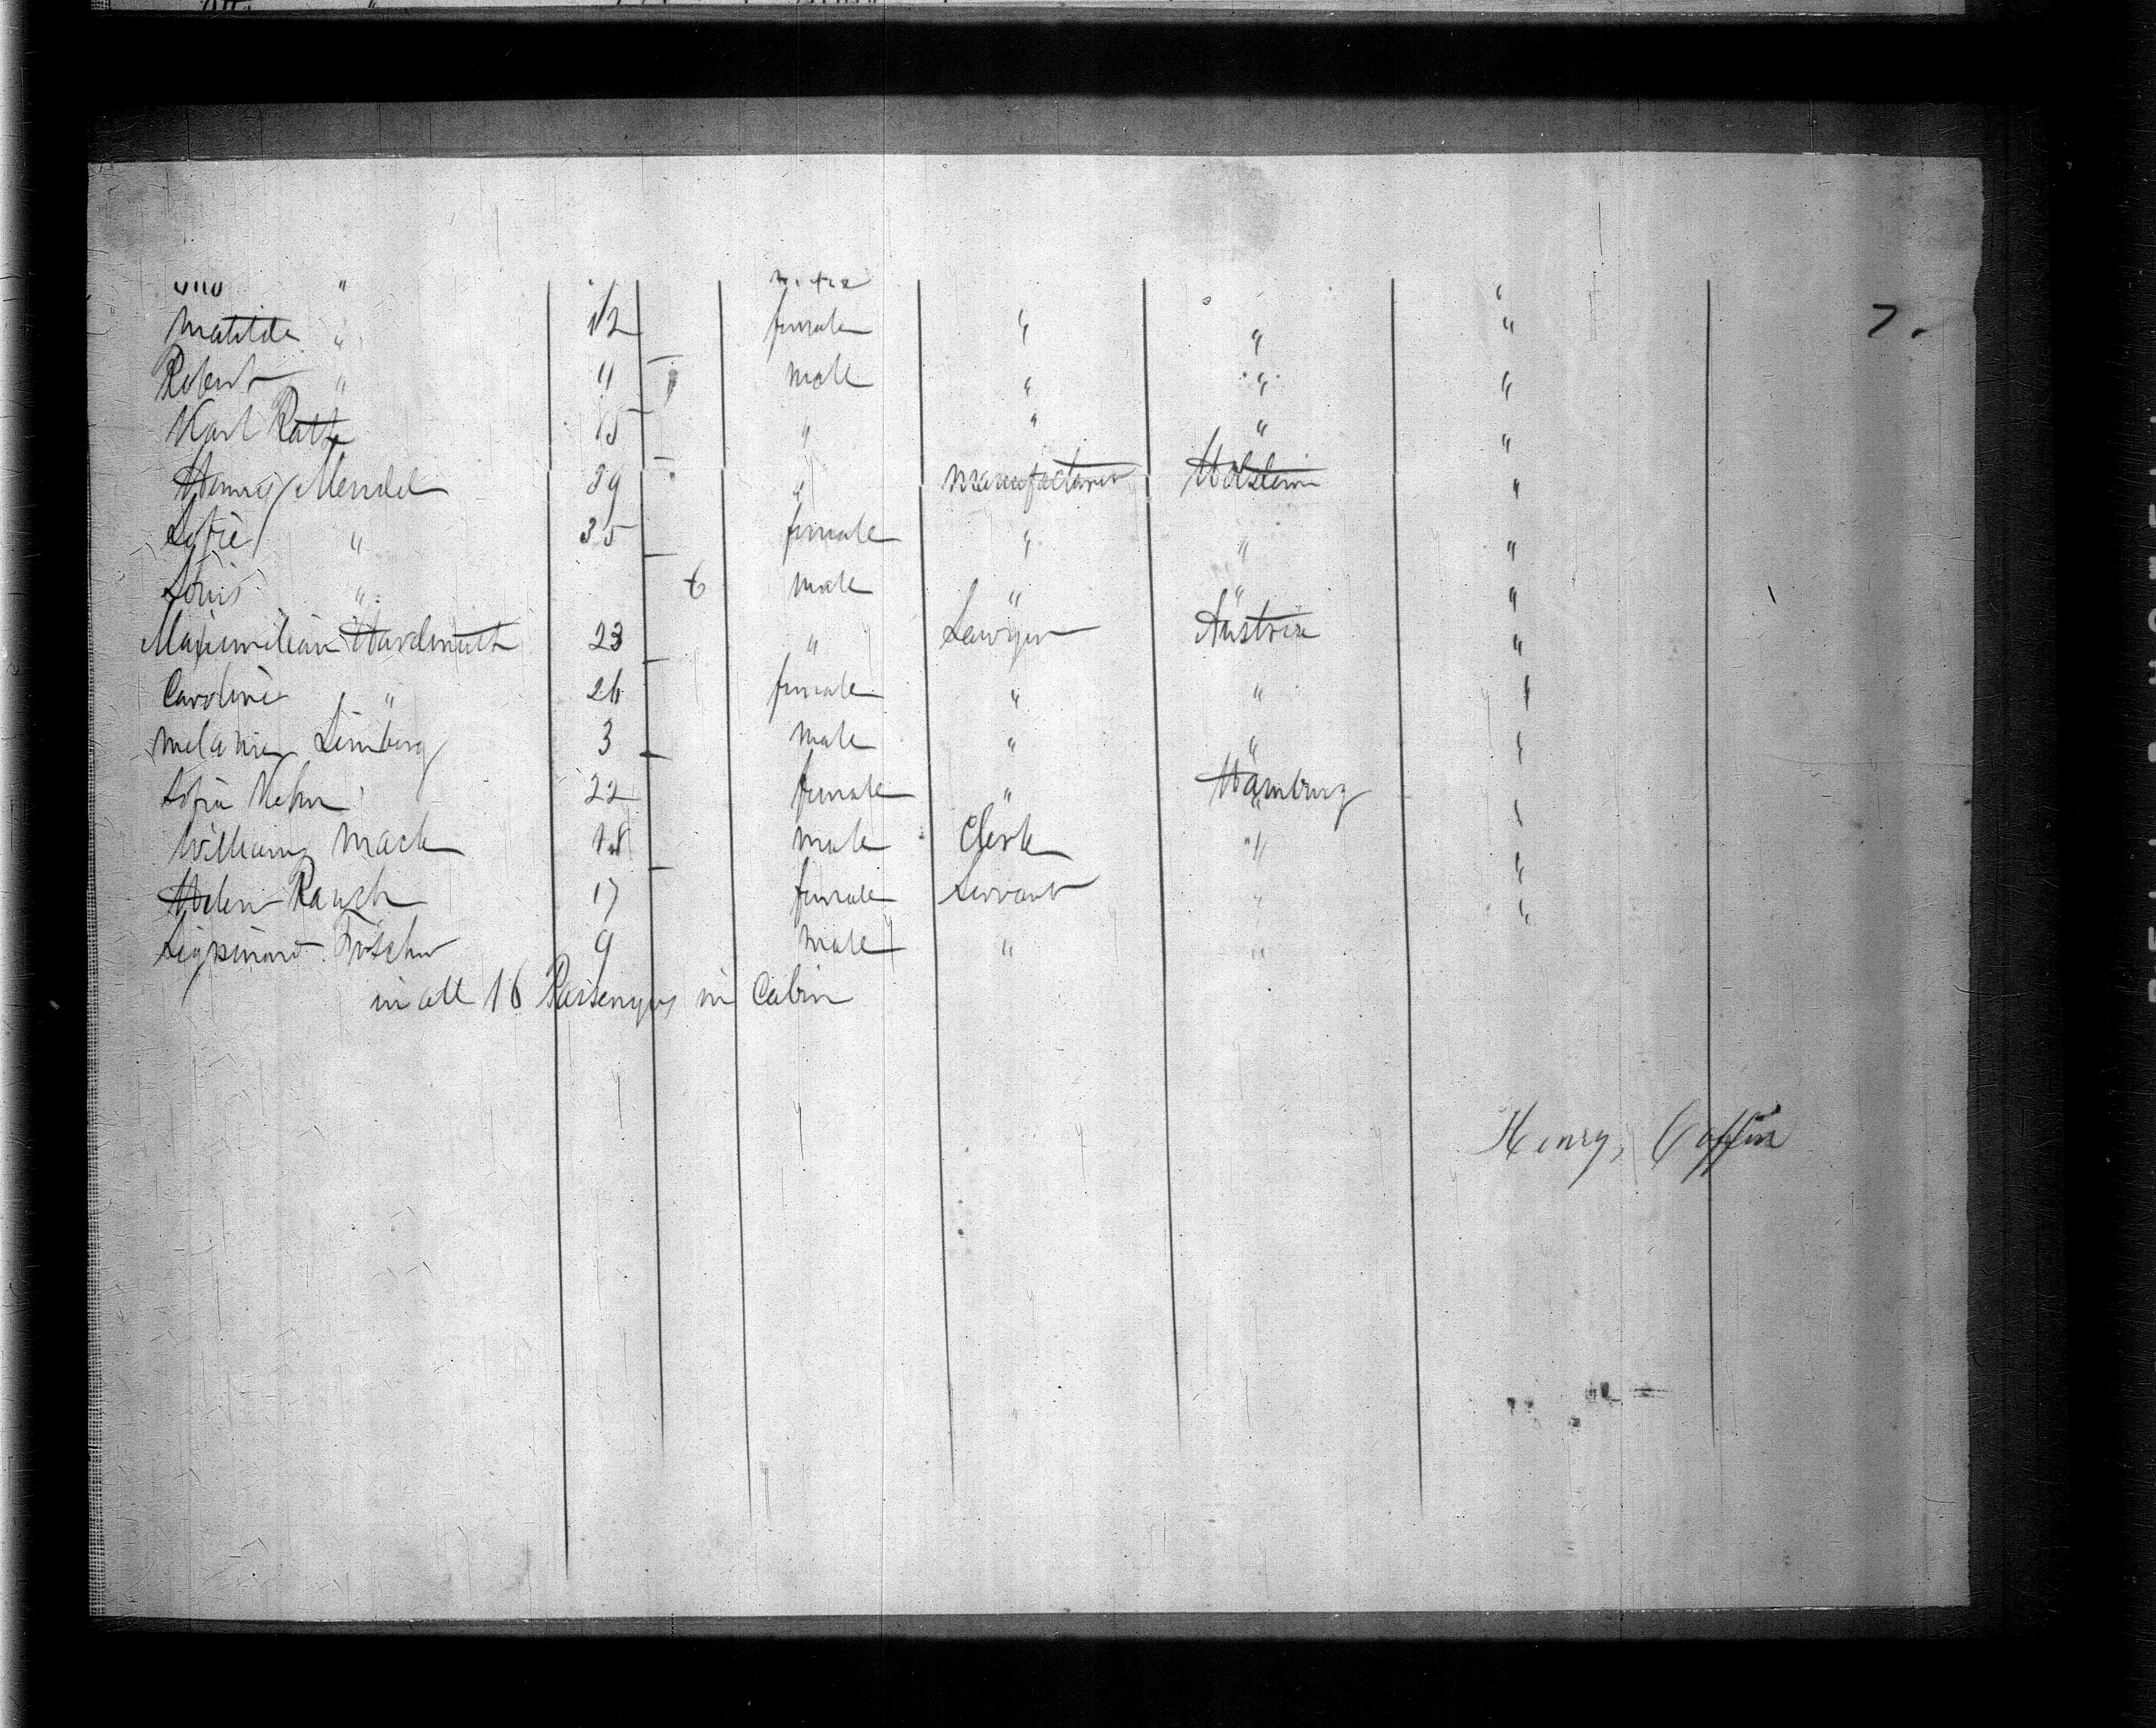 Otto "
Matilde " 12 female " " "
Robert " 9 male " " "
Karl Ratte 15 " " " "
Henry Mendel 39 " Manufacturer Holstein "
Sofie " 35 female " " "
Louis " 6 male " " "
Maximilian Hardmuth 23 " Lawyer Austria "
Caroline " 26 female " " "
Melanie Limberg 3 male " " "
Sofie 22 female " Hamburg "
William Mack 18 male Clerk " "
Helene Rauch 17 female Servant " "
Sigismund 9 male " " "
in all 16 Passengers in Cabin
Henry, Coffin
7.